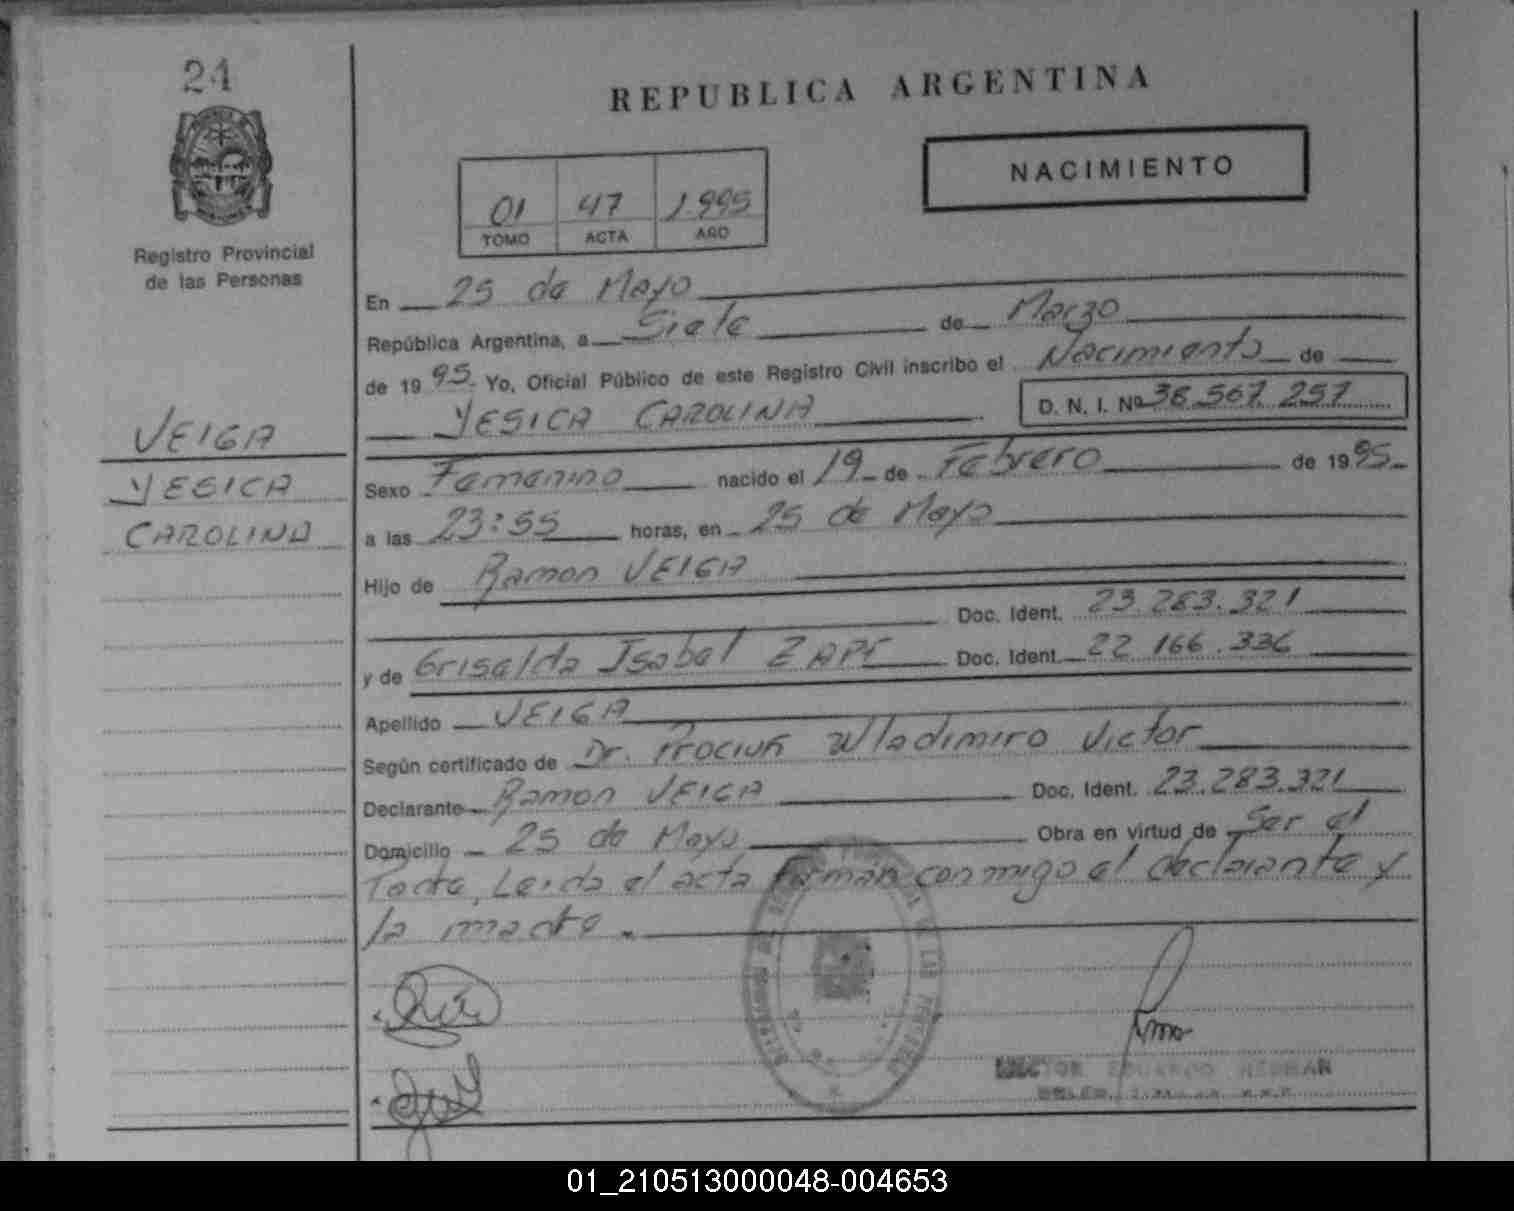 21
REPUBLICA ARGENTINA
NACIMIENTO
01 47 1.995
TOMO ACTA AÑO
Registro Provincial
de las Personas
En 25 de Mayo
República Argentina, a Siete de Marzo
de 1995. Yo, Oficial Público de este Registro Civil inscribo el Nacimiento de
YESICA CAROLINA D. N. I. Nº 38.567.257
VEIGA
YESICA
CAROLINA
Sexo Femenino nacido el 19 de Febrero de 1995
a las 23:55 horas, en 25 de Mayo
Hijo de Ramon VEIGA
Doc. Ident. 23.283.321
y de Griselda Isabel ZAPE Doc. Ident. 22 166.336
Apellido VEIGA
Según certificado de Dr. Prociuk Wladimiro Victor
Declarante Ramon VEIGA Doc. Ident. 23.283.321
Domicilio 25 de Mayo Obra en virtud de Ser el
Padre, Leida el acta firman conmigo el declarante y
la madre.
EDUARDO
01_210513000048-004653